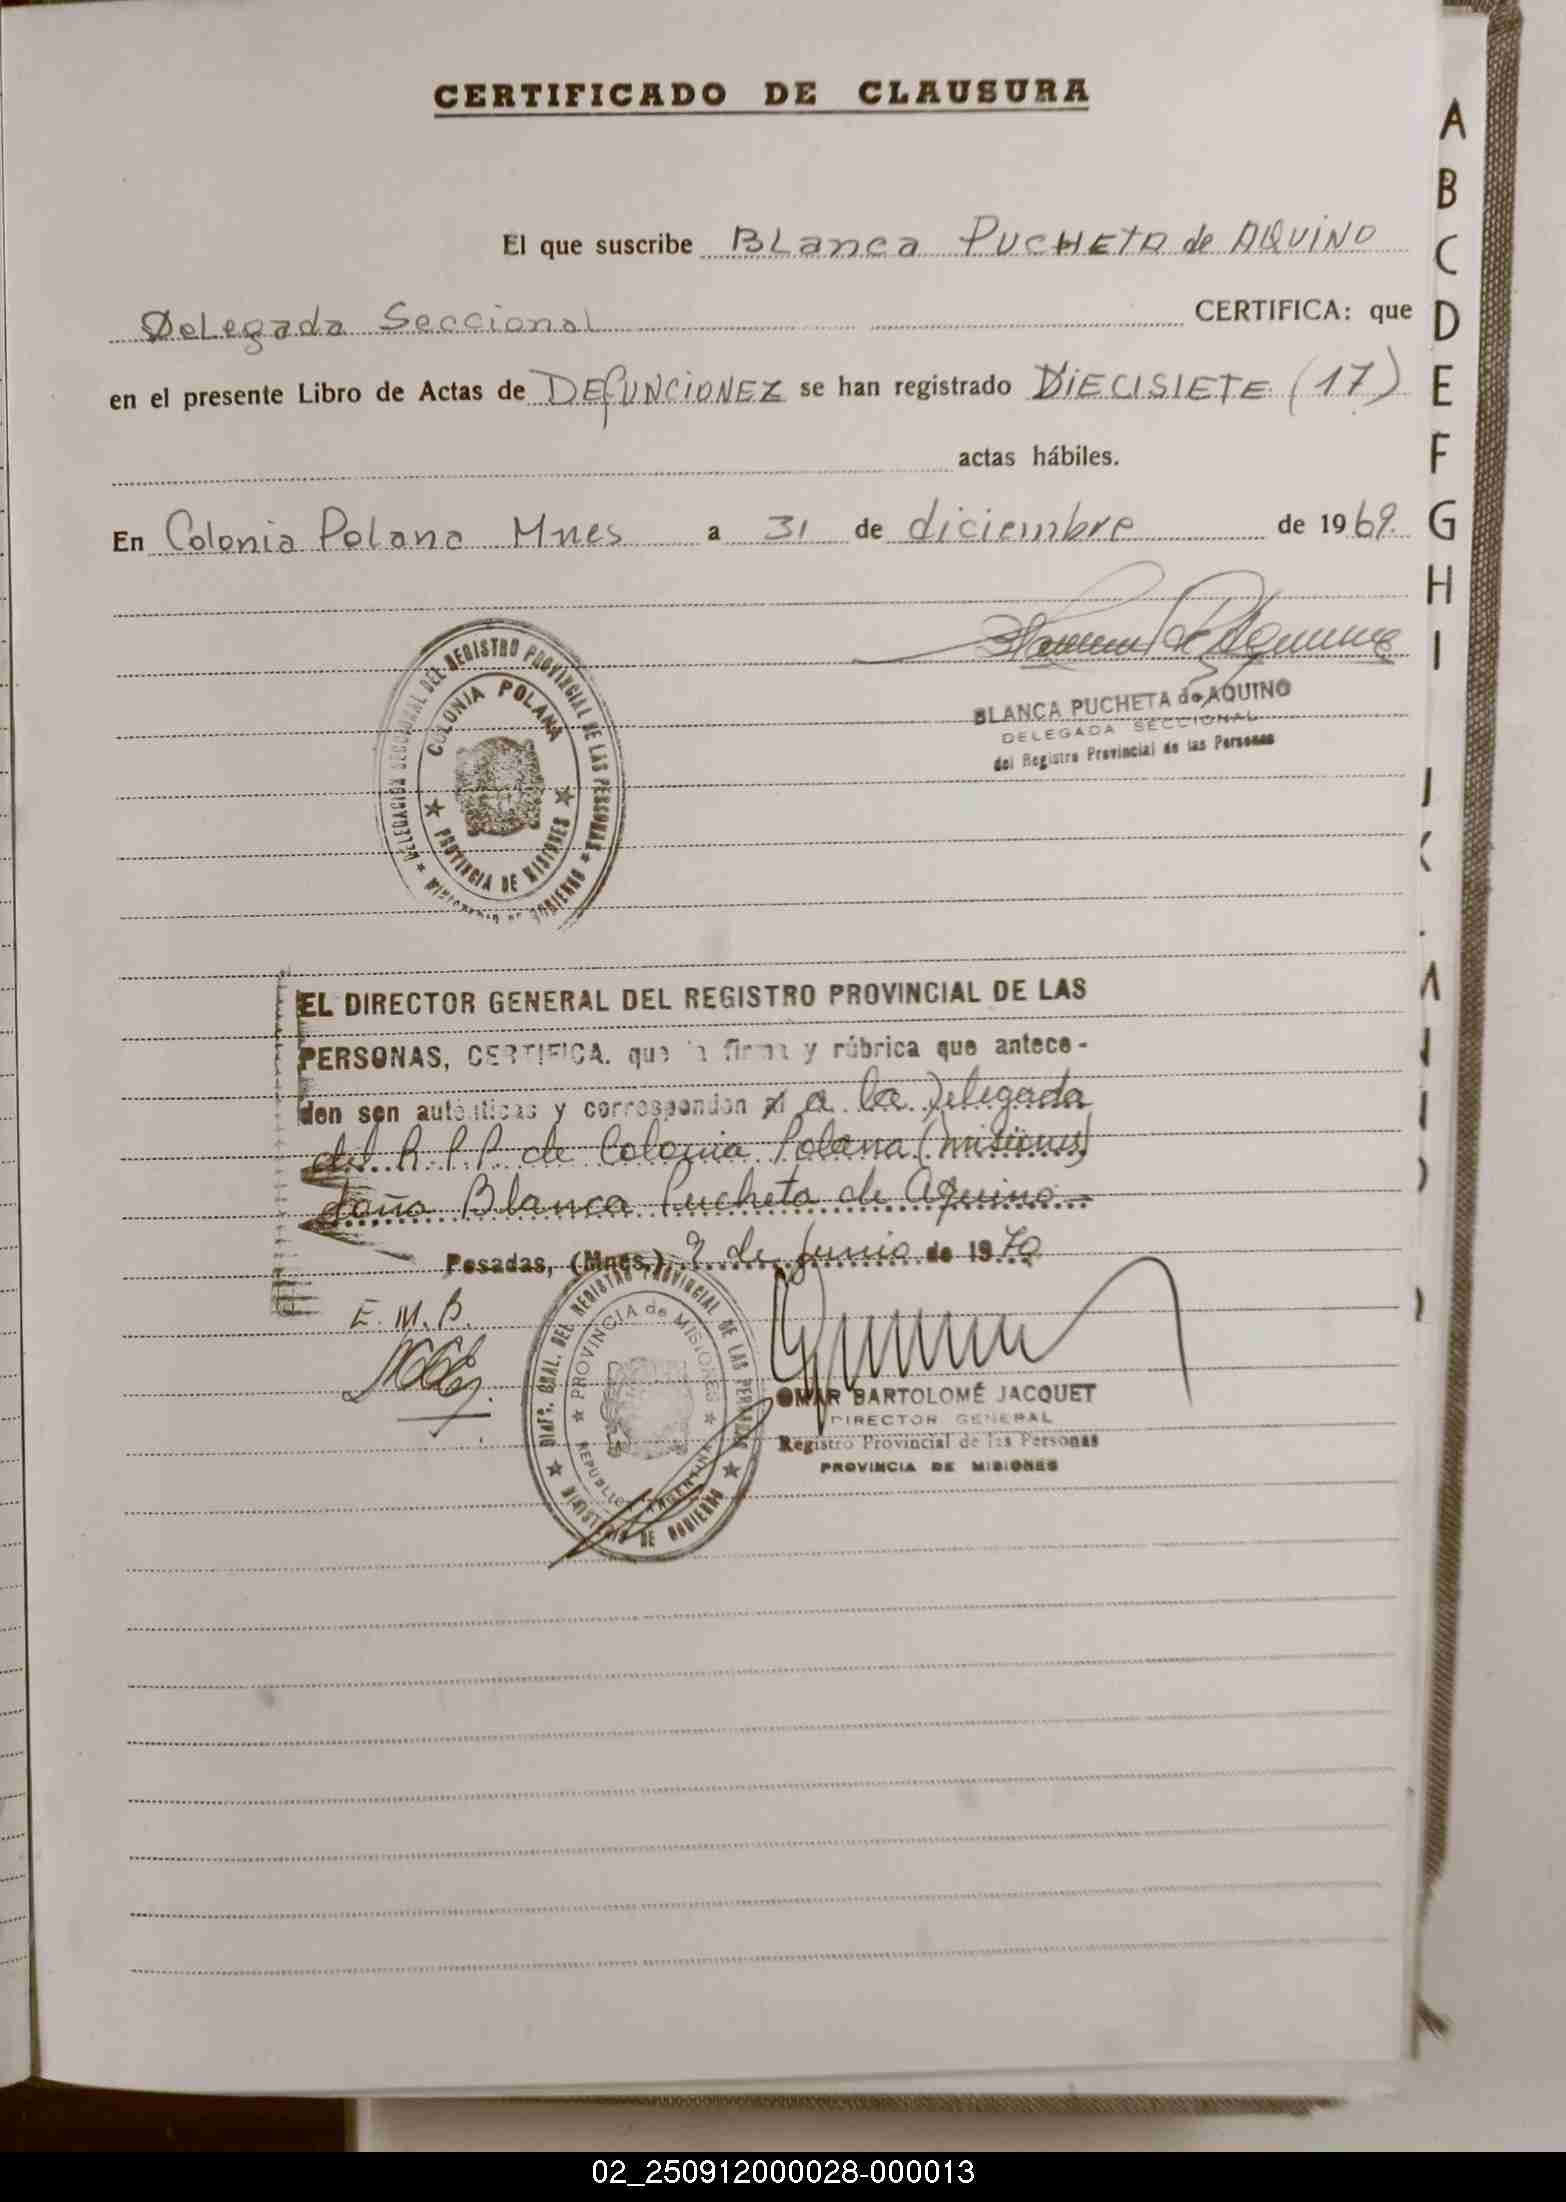 CERTIFICADO DE CLAUSURA
El que suscribe BLanca PUCHETA de AQUINO
DeLegada Seccional CERTIFICA: que
en el presente Libro de Actas de DEfUNCIONEZ se han registrado DIECISIETE (17)
actas hábiles.
En Colonia Polana Mnes a 31 de diciembre de 1969.
DELEGACION SECCIONAL DEL REGISTRO PROVINCIAL DE LAS PERSONAS
COLONIA POLANA
PROVINCIA DE MISIONES
MINISTERIO DE GOBIERNO
BLANCA PUCHETA de AQUINO
DELEGADA SECCIONAL
del Registro Provincial de las Personas
EL DIRECTOR GENERAL DEL REGISTRO PROVINCIAL DE LAS
PERSONAS, CERTIFICA. que la firma y rúbrica que antece-
den son auténticas y corresponden al a la Delegada
del R.P.P. de Colonia Polana (Misiones)
doña Blanca Pucheta de Aquino
Posadas, (Mnes.) 2 de Junio de 1970
E.M.B.
GRAL. DEL REGISTRO PROVINCIAL DE LAS PERSONAS
PROVINCIA de MISIONES
REPUBLICA ARGENTINA
MINISTERIO DE GOBIERNO
OMAR BARTOLOMÉ JACQUET
DIRECTOR GENERAL
Registro Provincial de las Personas
PROVINCIA DE MISIONES
A
B
C
D
E
F
G
H
I
J
02_250912000028-000013